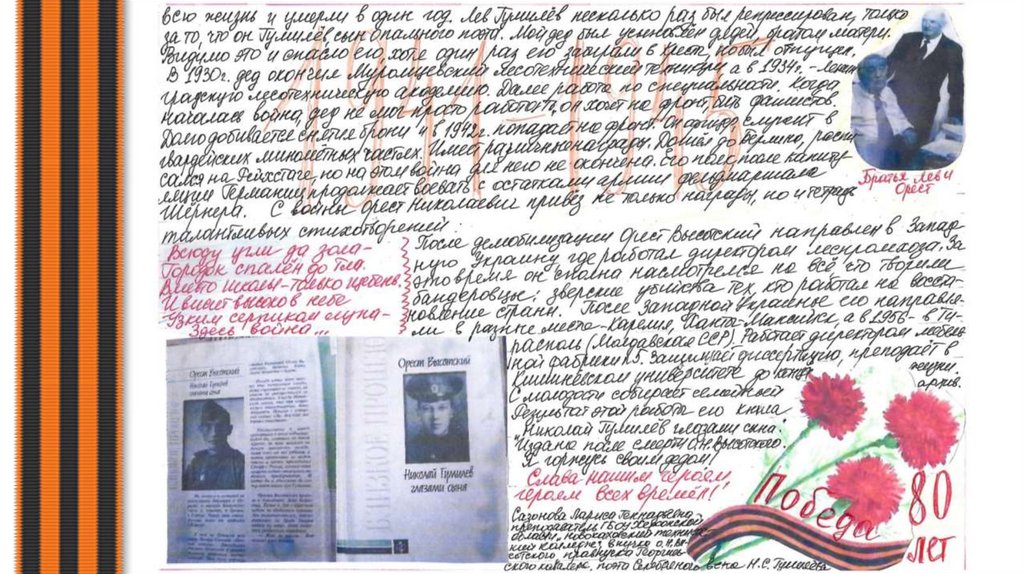 всю жизнь и умерли в один год. Лев Гумилёв несколько раз был репрессирован, только
за то, что он Гумилёв сын опального поэта. Мой дед был усыновлен дядей, братом матери.
Видимо это и спасло его, хотя один раз его забирали в Кресты, но был отпущен.
В 1930г. дед окончил Муромцевский лесотехнический техникум, а в 1934г. - Ленин
градскую лесотехническую академию. Далее работа по специальности. Когда
началась война, дед не мог просто работать, он хочет на фронт, бить фашистов.
Долго добивается снятие брони и в 1942г. попадает на фронт. Он офицер служит в
гвардейских миномётных частях. Имеет различные награды. Дошёл до Берлина, распи
сался на Рейхстаге, но на этом война для него не окончена. Его полк, после капиту
ляции Германии, продолжает воевать с остатками армии фельдмаршала
Шернера. С войны Орест Николаевич привёз не только награды, но и тетрадь
талантливых стихотворений:
1941-1945
Братья Лев и
Орест
Всюду угли да зола-
Городок спалён до тла.
Вместо школы-только щебень.
И висит высоко в небе
Узким серпиком луна-
Здесь война...
После демобилизации Орест Высотский направлен в Запад-
ную Украину, где работал директором леспромхоза. За
это время он сполна насмотрелся на всё что творили
бандеровцы: зверские убийства тех, кто работал на восста-
новление страны. После Западной Украины его направля-
ли в разные места-Карелия, Ханты-Мансийск, а в 1956- в Ти-
располь (Молдавская ССР). Работает директором мебель
ной фабрики №5. Защищает диссертацию, преподаёт в
Кишинёвском университете до конца жизни.
С молодости собирает семейный архив.
Результат этой работы его книга
"Николай Гумилёв глазами сына".
Издана после смерти О.Н. Высотского.
Я горжусь своим дедом!
Слава нашим героям,
героям всех времён!!
Сазонова Лариса Геннадьевна
преподаватель ГБОУ Херсонской
области, Новокаховский техниче
ский колледж, внучка О.Н. Вы-
сотского правнучка Георгиев
ского кавалера, поэта Серебряного века Н.С. Гумилёва
Орест Высотский
Николай Гумилев
глазами сына
Орест Высотский
Николай Гумилев
глазами сына
Победа
80
лет